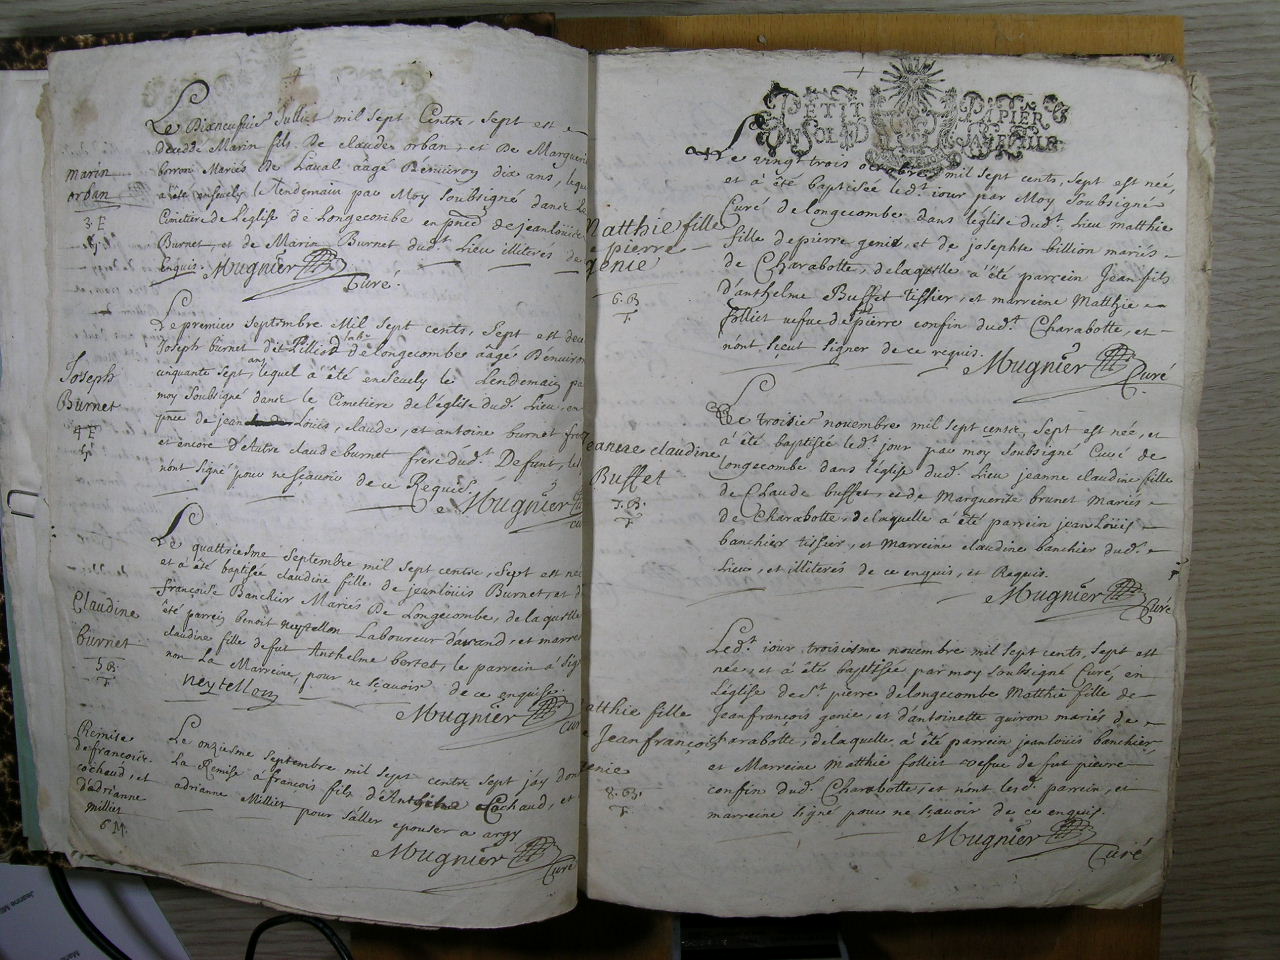 Le Dixneufvie Julliet mil sept Cents, Sept est
decedé Marin fils De claude orban, et De Marguerit
borron Mariés de Laval aagé D'environ dix ans, leque
a été enseuely le Lendemain par Moy Soubsigné dans Le
Cimetière de l'eglise de Longecombe en pnce de jeanloüis
Burnet, et de Marin Burnet dudt. Lieu illiterés de
Enquis. Mugnier
Curé.
marin
orban
3. E
Le premier Septembre Mil Sept cents, Sept est dece
Joseph burnet dit de longecombe aâgé D'environ
cinquante sept ans, lequel a été enseuely le Lendemain pa
moy Soubsigné dans le Cimetière de l'église dud. Lieu, en
pnce de jean Louis, claude, et antoine burnet frer
et encore d'Autre claude burnet frere dudt. Defunt, les
nont Signé pour ne scavoir de ce Requis.
Mugnier
cu
Joseph
Burnet
4 E
Le quattriesme Septembre mil Sept cents, Sept est née
et a été baptisée claudine fille de jeanloüis Burnet, et d
françoise Banchier Mariés De Longecombe, de laquelle
été parrein benoit neytellon Laboureur d'arand, et marre
claudine fille de fut Anthelme bertet, le parrein a Sig
non La Marreine, pour ne sçavoir de ce enquise.
neytellon
Mugnier
Cur
Claudine
burnet
5 B.
Le onziesme Septembre mil Sept cents Sept jay donn
La Remise à françois fils d'Anthelme Cochaud, et
adrianne Milliet pour s'aller epouser a argy
Mugnier
Curé
Remise
de françois
cochaud, et
d'adrianne
milliet
6 M.
PETIT PAPIER
UN SOL D LA FEUILE
Le vingt trois octobre mil sept cents, sept est née,
et à été baptisée led. iour par Moy Soubsigné
Curé de longecombe dans l'eglise dudt. Lieu matthie
fille de pierre genie, et de josephte billion mariés
de Charabotte, de laquelle a été parrein Jean fils
d'anthelme Buffet tissier, et marreine Matthie
folliet vefue de pierre confin dudt. Charabotte, et
n'ont sçeut signer de ce requis.
Mugnier
Curé
Matthie fille
pierre
genie
6. B
Le troisie novembre mil Sept cents, Sept est née, et
a été baptisée ledt. jour par moy Soubsigné Curé de
longecombe dans l'église dud. Lieu jeanne claudine fille
de Claude buffet, et de Marguerite brunet Mariés
de Charabotte, de laquelle a été parrein jean Loüis
banchier tissier, et Marreine claudine banchier dud.
Lieu, et illiterés de ce enquis, et Requis.
Mugnier
Curé
eanne claudine
Buffet
7. B.
Ledt. iour troisiesme novembre mil Sept cents, Sept est
née, et a été baptisée par moy Soubsigné Curé, en
L'église de St. pierre de longecombe Matthie fille de
Jeanfrançois genie, et d'antoinette guiron mariés de
Charabotte, de laquelle a été parrein jeanloüis banchier,
et Marreine Matthie folliet vefue de fut pierre
confin dud. Charabotte, et nont lesd. parrein, et
marreine signé pour ne sçavoir de ce enquis.
Mugnier
Curé
atthie fille
Jeanfrançois
enie
8. B.